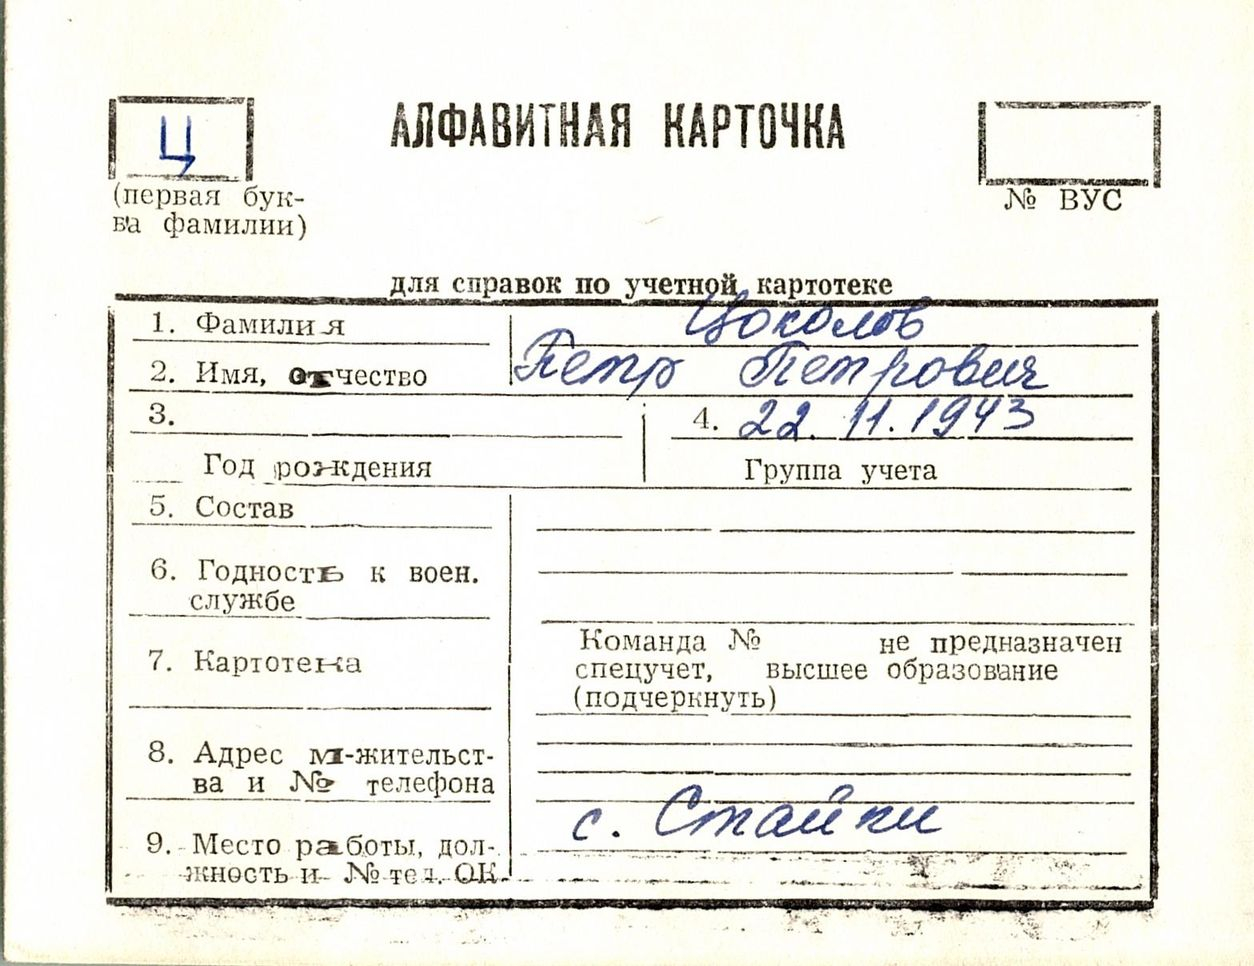 Ц
АЛФАВИТНАЯ КАРТОЧКА
(первая бук-
ва фамилии)
№ ВУС
для справок по учетной картотеке
1. Фамилия Цоколов
2. Имя, отчество Петр Петрович
3.
4. 22.11.1943
Год рождения
Группа учета
5. Состав
6. Годность к воен.
службе
7. Картотека
Команда № не предназначен
спецучет, высшее образование
(подчеркнуть)
8. Адрес м-жительст-
ва и № телефона
с. Стайки
9. Место работы, дол-
жность и № тел. ОК